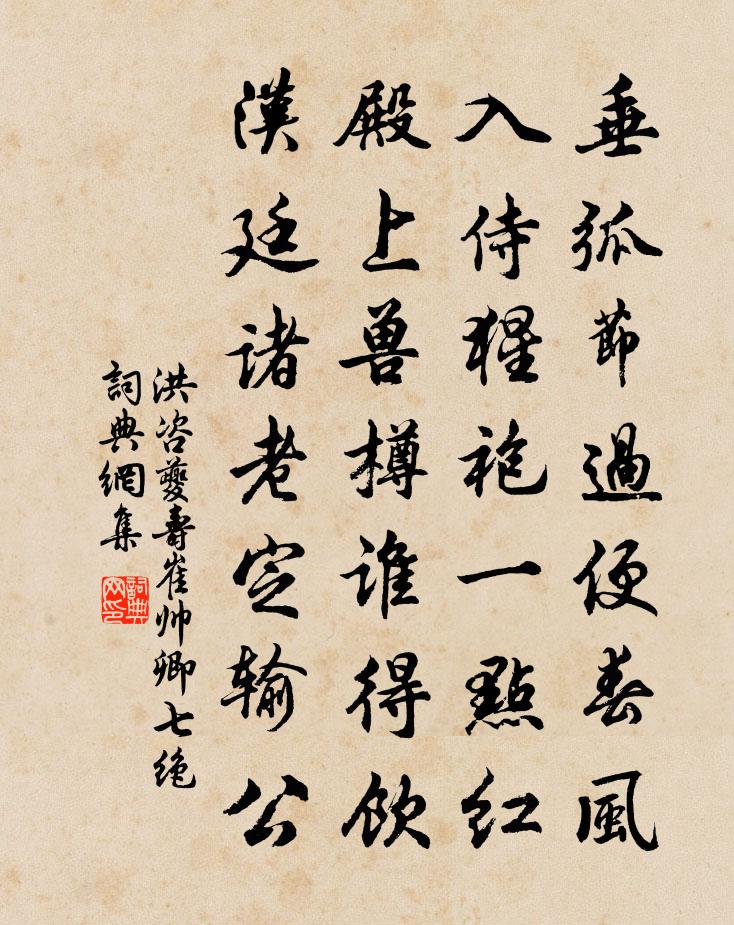 垂弧節過便春風
入侍猩袍一點紅
殿上兽樽谁得飲
漢廷诸老定输公
洪咨夔壽崔帅卿七绝
詞典網集
詞典網印